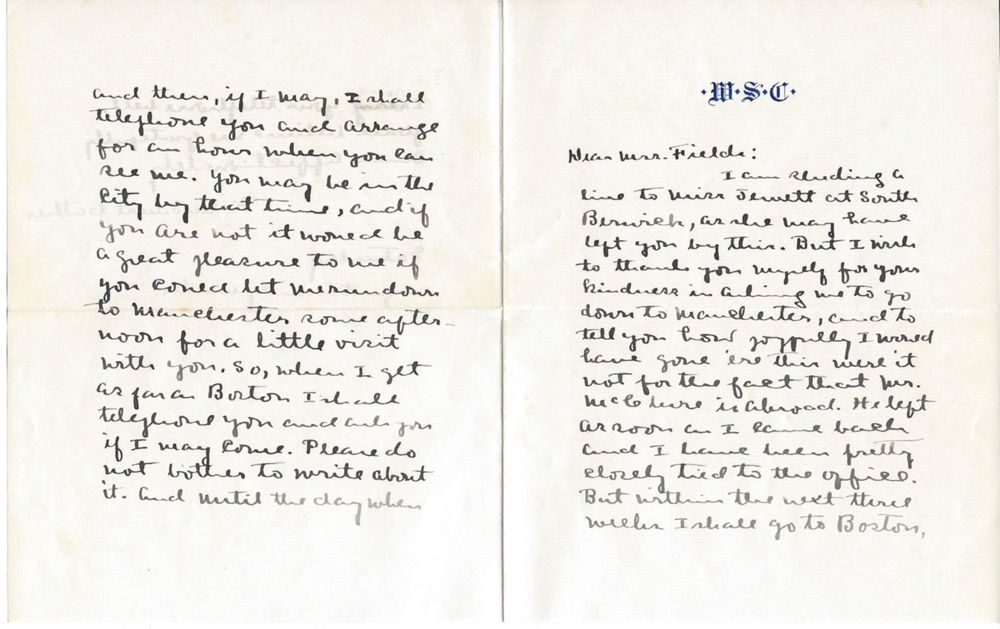 ·W·S·C·
Dear Mrs. Fields:
I am sending a
line to Miss Jewett at South
Berwick, as she may have
left you by this. But I wish
to thank you myself for your
kindness in asking me to go
down to Manchester, and to
tell you how joyfully I would
have gone 'ere this were it
not for the fact that Mr.
McClure is abroad. He left
as soon as I came back
and I have been pretty
closely tied to the office.
But within the next three
weeks I shall go to Boston,
and then, if I may, I shall
telephone you and arrange
for an hour when you can
see me. You may be in the
City by that time, and if
you are not it would be
a great pleasure to me if
you could let me run down
to Manchester some after-
noon for a little visit
with you. So, when I get
as far as Boston I shall
telephone you and ask you
if I may come. Please do
not bother to write about
it. And until the day when